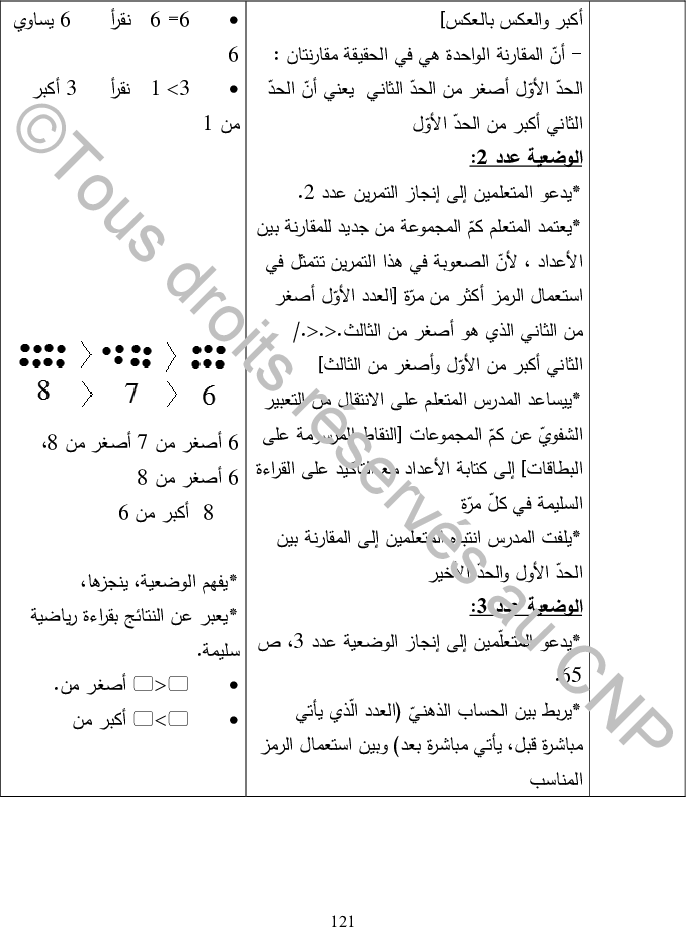 أكبر والعكس بالعكس]
– أنّ المقارنة الواحدة هي في الحقيقة مقارنتان :
الحدّ الأوّل أصغر من الحدّ الثاني يعني أنّ الحدّ
الثاني أكبر من الحدّ الأوّل
الوضعية عدد 2:
*يدعو المتعلمين إلى إنجاز التمرين عدد 2.
*يعتمد المتعلم كمّ المجموعة من جديد للمقارنة بين
الأعداد ، لأنّ الصعوبة في هذا التمرين تتمثل في
استعمال الرمز أكثر من مرّة [العدد الأوّل أصغر
من الثاني الذي هو أصغر من الثالث.<.<./
الثاني أكبر من الأوّل وأصغر من الثالث]
*ييساعد المدرس المتعلم على الانتقال من التعبير
الشفويّ عن كمّ المجموعات [النقاط المرسومة على
البطاقات] إلى كتابة الأعداد مع التأكيد على القراءة
السليمة في كلّ مرّة
*يلفت المدرس انتباه المتعلمين إلى المقارنة بين
الحدّ الأول والحدّ الأخير
الوضعية عدد 3:
*يدعو المتعلّمين إلى إنجاز الوضعية عدد 3، ص
65.
*يربط بين الحساب الذهنيّ (العدد الّذي يأتي
مباشرة قبل، يأتي مباشرة بعد) وبين استعمال الرمز
المناسب
• 6= 6 نقرأ 6 يساوي
6
• 3> 1 نقرأ 3 أكبر
من 1
6 〉 7 〉 8
6 أصغر من 7 أصغر من 8،
6 أصغر من 8
8 أكبر من 6
*يفهم الوضعية، ينجزها،
*يعبر عن النتائج بقراءة رياضية
سليمة.
• ▢<▢ أصغر من.
• ▢>▢ أكبر من
©Tous droits réservés au CNP
121